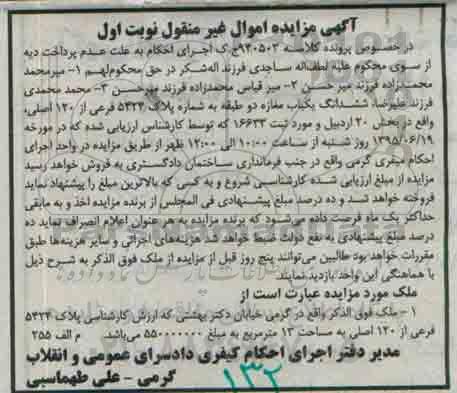 آگهی مزایده اموال غیر منقول نوبت اول
در خصوص پرونده کلاسه ۹۴۰۵۰۳ج.ک اجرای احکام به علت عدم پرداخت دیه
از سوی محکوم علیه لطف‌اله ساجدی فرزند اله‌شکر در حق محکوم‌لهم ۱- میرمحمد
محمدزاده فرزند میر حسن ۲- میر قیاس محمدزاده فرزند میرحسن ۳- محمد محمدی
فرزند علیرضا، ششدانگ یکباب مغازه دو طبقه به شماره پلاک ۵۴۲۴ فرعی از ۱۲۰ اصلی،
واقع در بخش ۲۰ اردبیل و مورد ثبت ۱۶۶۳۳ که توسط کارشناس ارزیابی شده که در مورخه
۱۳۹۵/۰۶/۱۹ روز شنبه از ساعت ۱۰:۰۰ الی ۱۲:۰۰ ظهر از طریق مزایده در واحد اجرای
احکام کیفری گرمی واقع در جنب فرمانداری ساختمان دادگستری به فروش خواهد رسید
مزایده از مبلغ ارزیابی شده کارشناسی شروع و به کسی که بالاترین مبلغ را پیشنهاد نماید
فروخته خواهد شد و ده درصد مبلغ پیشنهادی فی المجلس از برنده مزایده اخذ و به مابقی
حداکثر یک ماه فرصت داده می‌شود که برنده مزایده به هر عنوان اعلام انصراف نماید ده
درصد مبلغ پیشنهادی به نفع دولت ضبط خواهد شد هزینه‌های اجرائی و سایر هزینه‌ها طبق
مقررات خواهد بود طالبین می‌توانند پنج روز قبل از مزایده از ملک فوق الذکر به شرح ذیل
با هماهنگی این واحد بازدید نمایند.
ملک مورد مزایده عبارت است از
۱ - ملک فوق الذکر واقع در گرمی خیابان دکتر بهشتی که ارزش کارشناسی پلاک ۵۴۲۴
فرعی از ۱۲۰ اصلی به مساحت ۱۳ مترمربع به مبلغ ۵۵۰۰۰۰۰۰۰ می‌باشد. م الف ۲۵۵
مدیر دفتر اجرای احکام کیفری دادسرای عمومی و انقلاب
گرمی - علی طهماسبی
۱۳۲